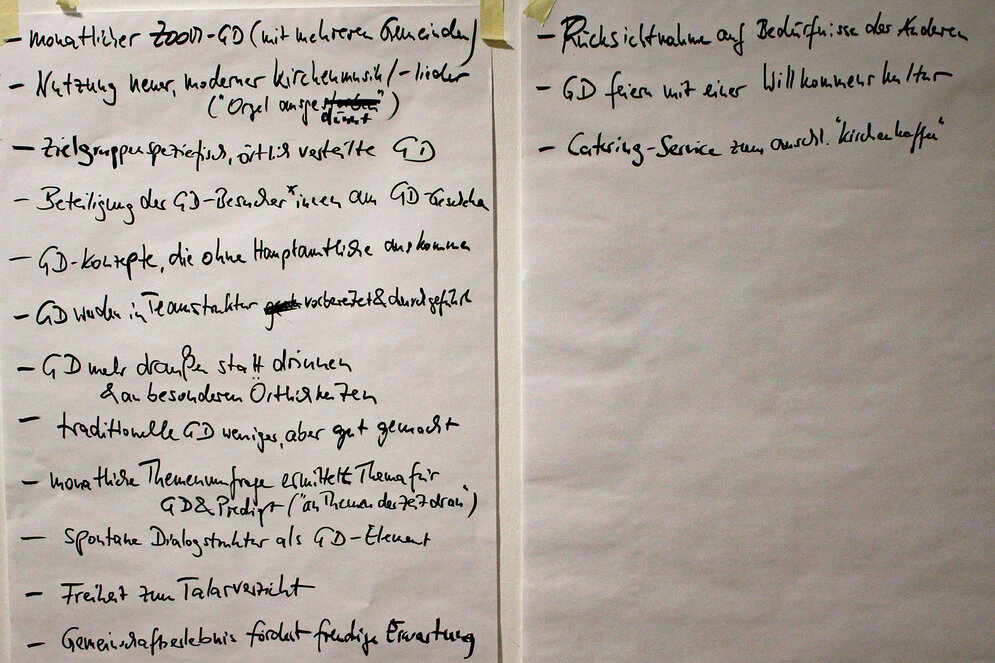 - monatlicher ZOOM-GD (mit mehreren Gemeinden)
- Nutzung neuer, moderner Kirchenmusik/-lieder
("Orgel ausgedünnt")
- Zielgruppenspezifisch, örtlich verteilte GD
- Beteiligung der GD-Besucher*innen am GD-Gescheh
- GD-Konzepte, die ohne Hauptamtliche auskommen
- GD werden in Teamstruktur vorbereitet & durchgeführt
- GD mehr draußen statt drinnen
& an besonderen Örtlichkeiten
- traditionelle GD weniger, aber gut gemacht
- monatliche Themenumfrage ermittelt Thema für
GD & Predigt ("an Themen der Zeit dran")
- Spontane Dialogstruktur als GD-Element
- Freiheit zum Talarverzicht
- Gemeinschaftserlebnis fördert freudige Erwartung
- Rücksichtnahme auf Bedürfnisse des Anderen
- GD feiern mit einer Willkommenskultur
- Catering-Service zum anschl. "Kirchenkaffee"